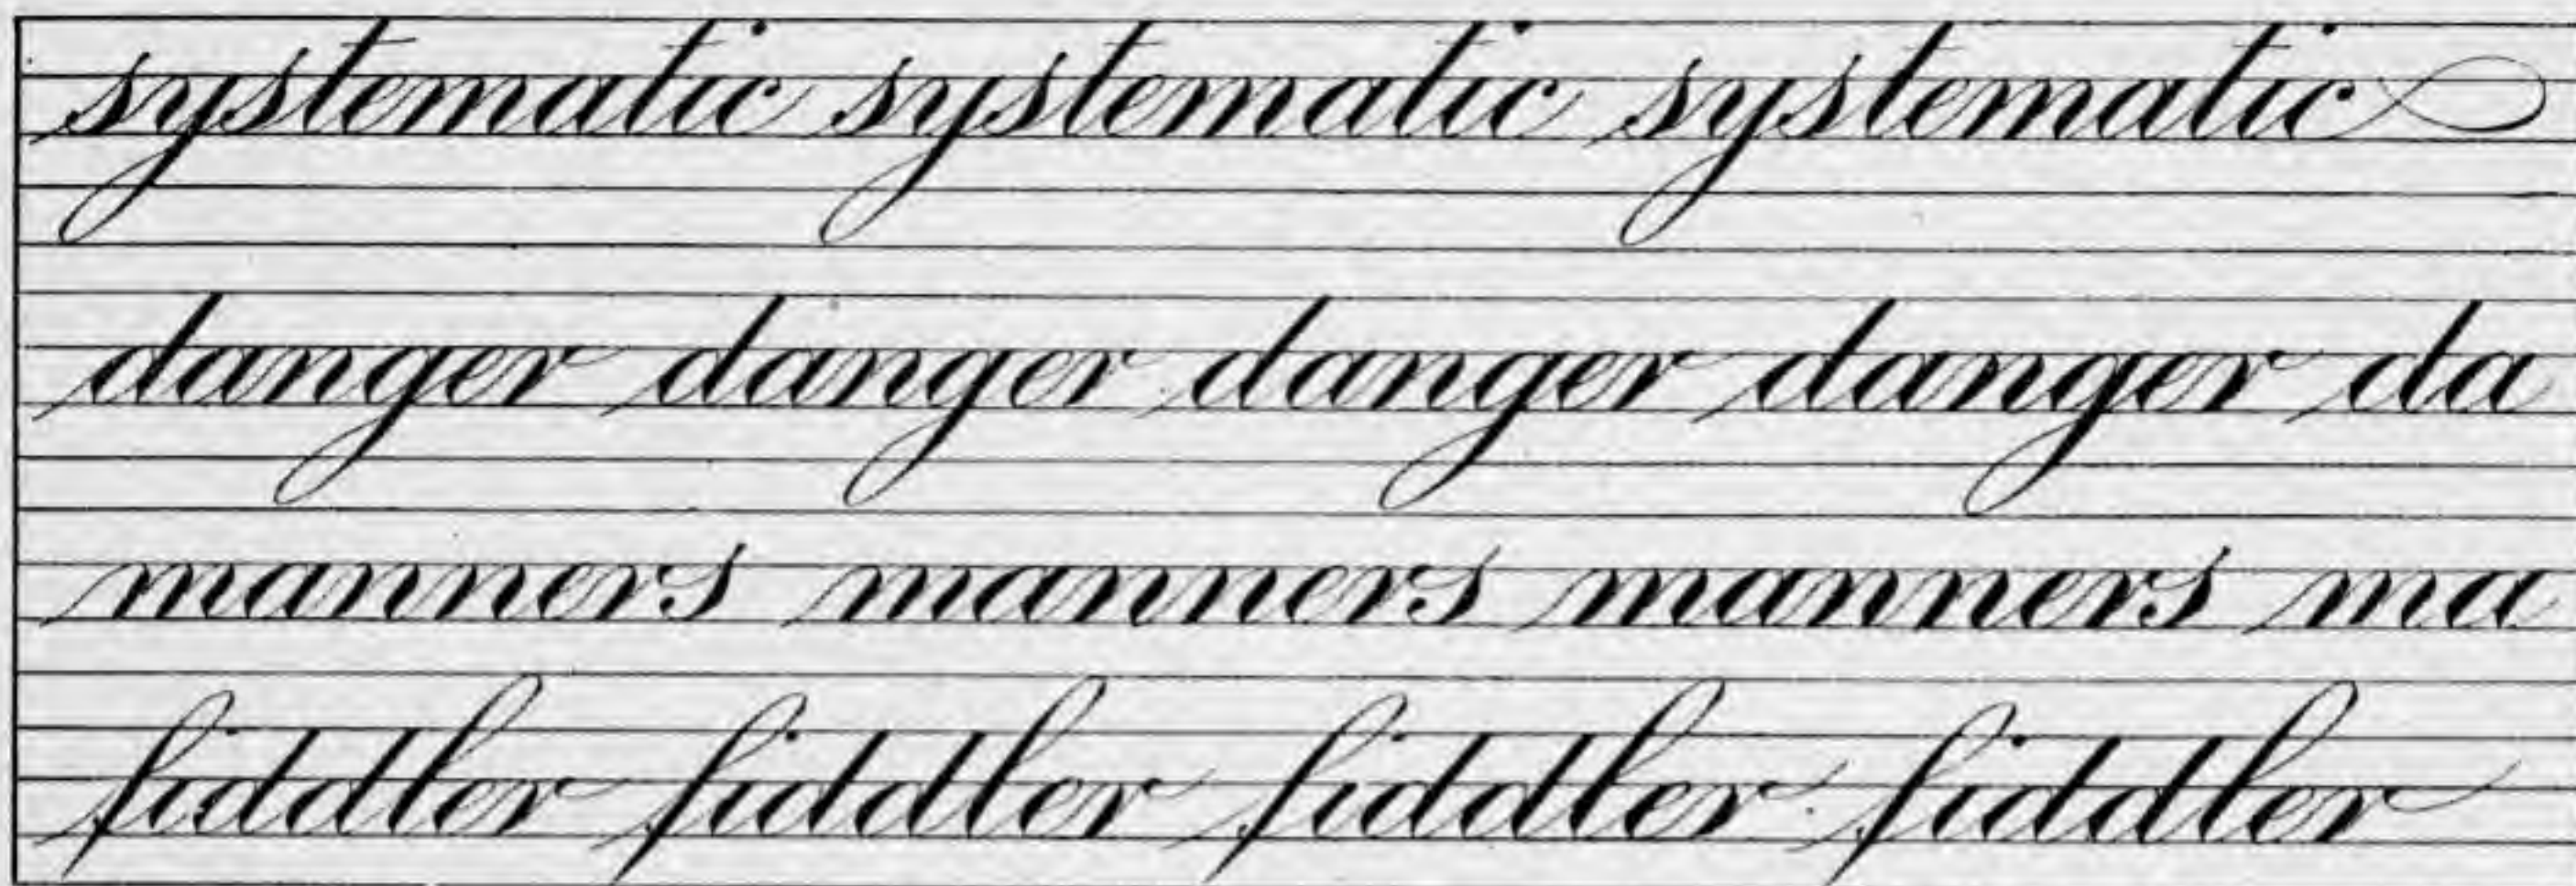 systematic systematic systematic
danger danger danger danger da
manners manners manners ma
fiddler fiddler fiddler fiddler